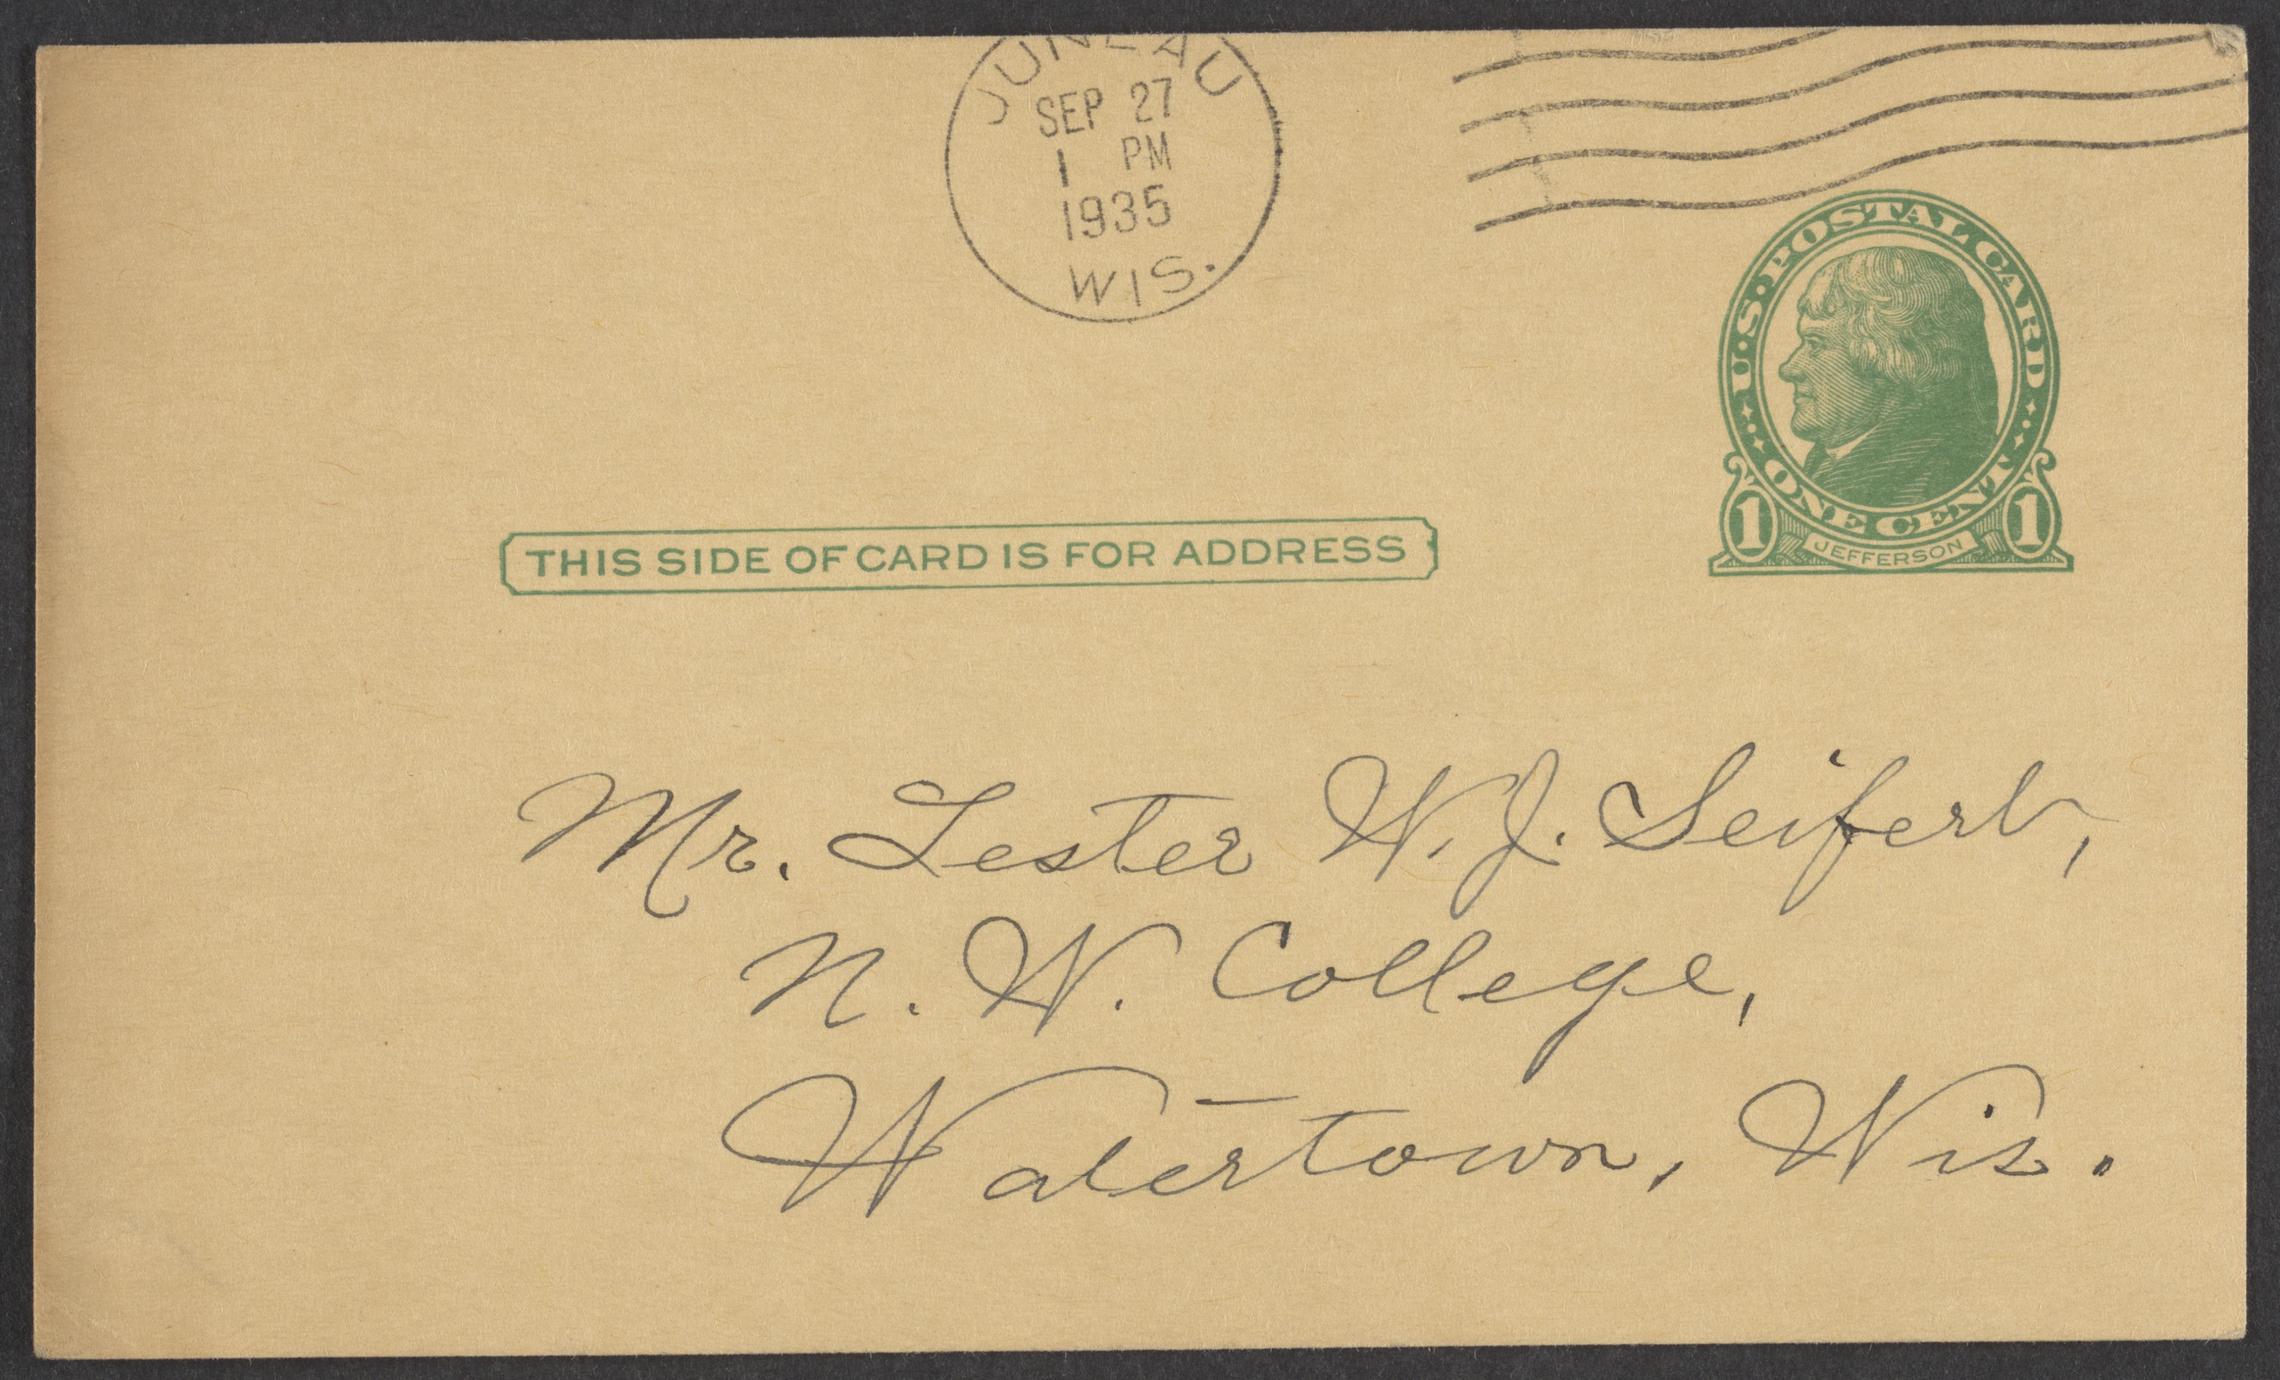 JUNEAU
SEP 27
1 PM
1935
WIS.
U.S. POSTAL CARD
ONE CENT
1 JEFFERSON 1
THIS SIDE OF CARD IS FOR ADDRESS
Mr. Lester W. J. Seifert,
N. W. College,
Watertown, Wis.